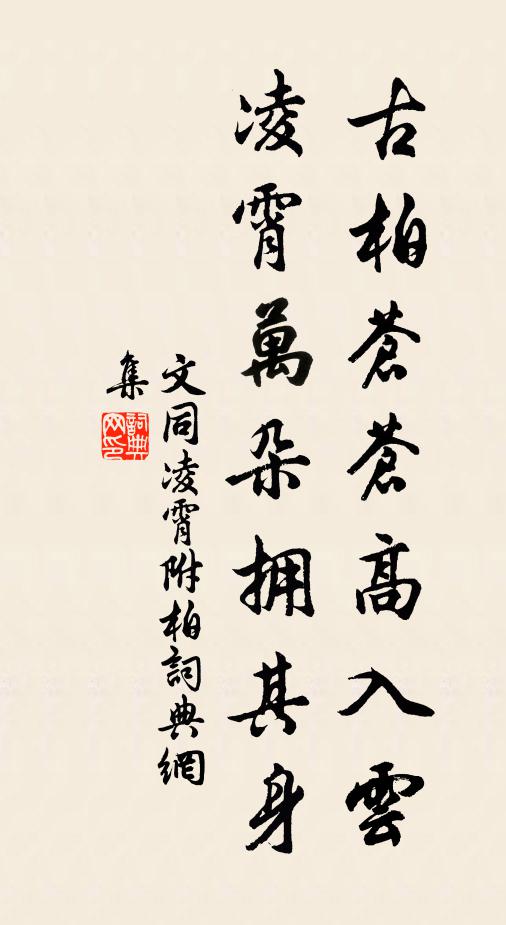 古柏蒼蒼高入雲
凌霄萬朵拥其身
文同凌霄附柏詞典網
集
詞典網印